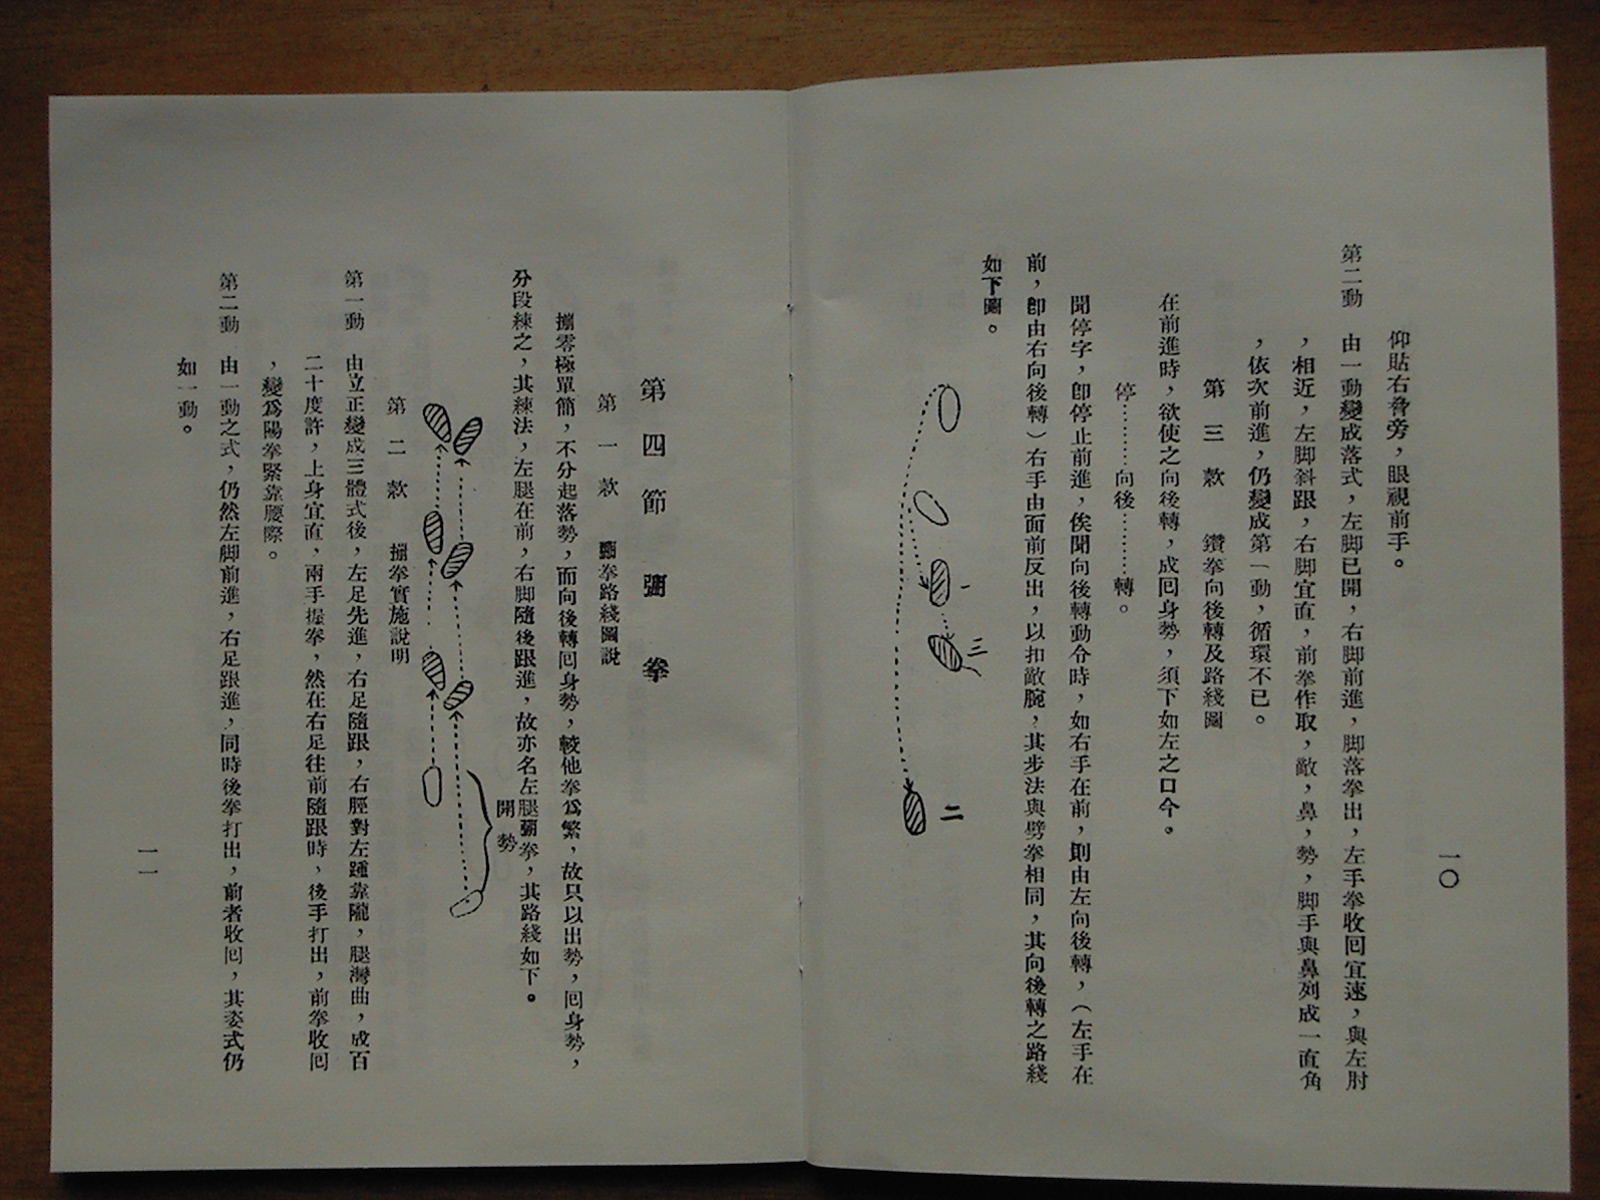 一〇
仰貼右脅旁，眼視前手。
第二動　由一動變成落式，左脚已開，右脚前進，脚落拳出，左手拳收回宜速，與左肘
，相近，左脚斜跟，右脚宜直，前拳作取，敵，鼻，勢，脚手與鼻列成一直角
，依次前進，仍變成第一動，循環不已。
第三款　鑽拳向後轉及路綫圖
在前進時，欲使之向後轉，成回身勢，須下如左之口令。
停………向後………轉。
聞停字，卽停止前進，俟聞向後轉動令時，如右手在前，則由左向後轉，（左手在
前，卽由右向後轉）右手由面前反出，以扣敵腕，其步法與劈拳相同，其向後轉之路綫
如下圖。
一
三
二
第四節　弸拳
第一款　弸拳路綫圖說
弸零極單簡，不分起落勢，而向後轉回身勢，較他拳爲繁，故只以出勢，回身勢，
分段練之，其練法，左腿在前，右脚隨後跟進，故亦名左腿弸拳，其路綫如下。
開勢
第二款　弸拳實施說明
第一動　由立正變成三體式後，左足先進，右足隨跟，右脛對左踵靠隴，腿灣曲，成百
二十度許，上身宜直，兩手握拳，然在右足往前隨跟時，後手打出，前拳收回
，變爲陽拳緊靠腰際。
第二動　由一動之式，仍然左脚前進，右足跟進，同時後拳打出，前者收回，其姿式仍
如一動。
一一